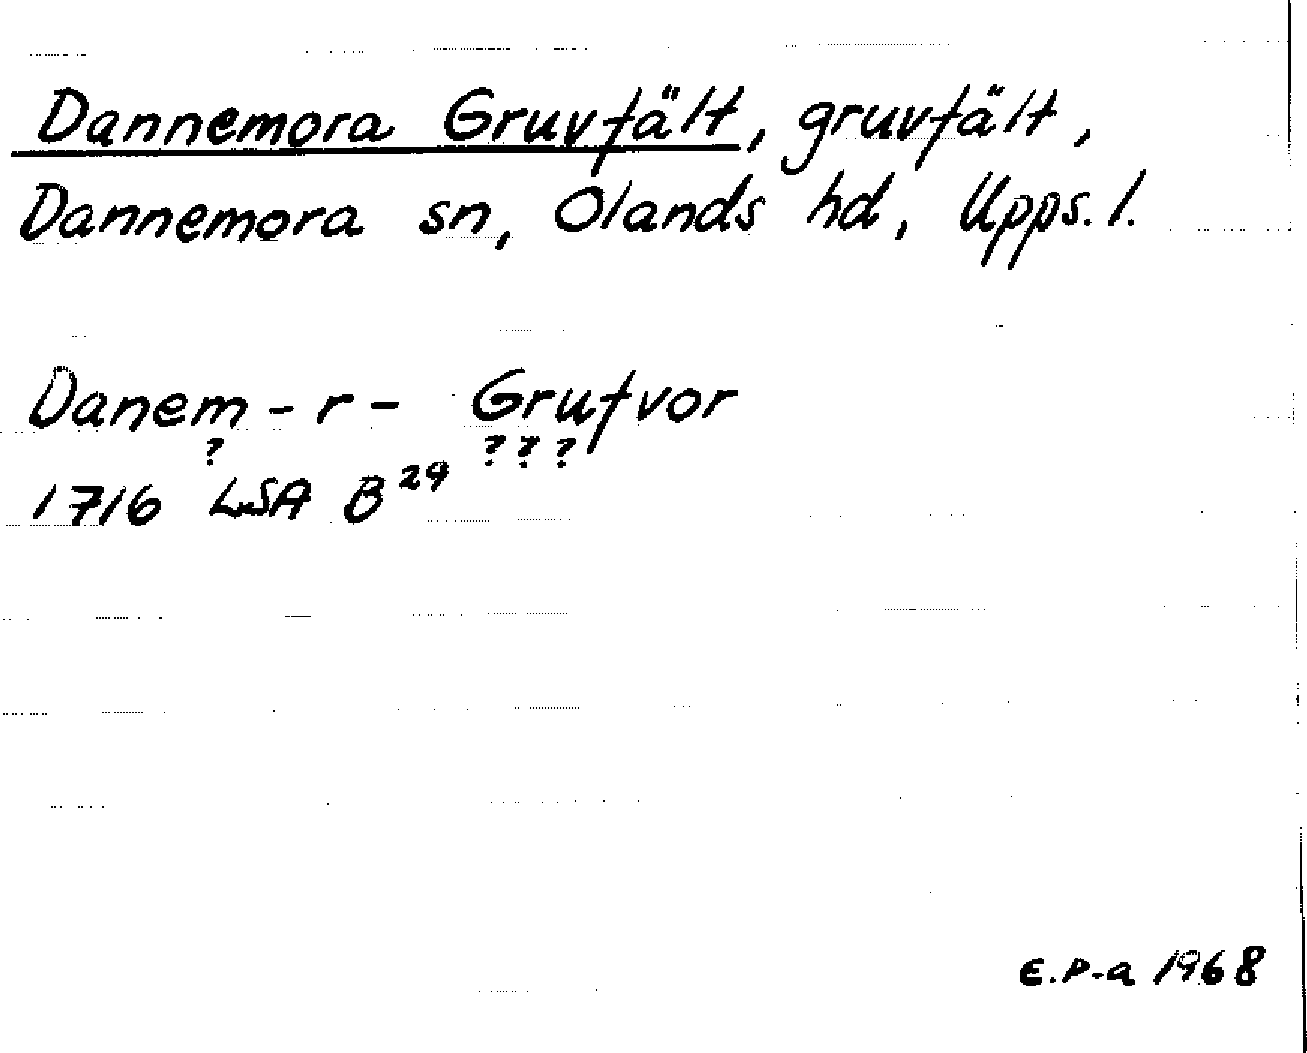 Dannemora Gruvfält, gruvfält,
Dannemora sn, Olands hd, Upps. l.
Danem - r - Grufvor
? ? ? ?
1716 LSA B²⁹
E.P-a 1968